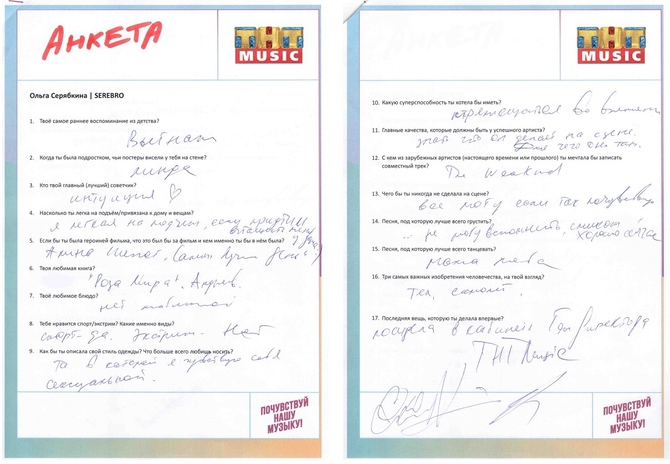 АНКЕТА
ТНТ
MUSIC
Ольга Серябкина | SEREBRO
1. Твоё самое раннее воспоминание из детства?
Вьетнам
2. Когда ты была подростком, чьи постеры висели у тебя на стене?
Линда
3. Кто твой главный (лучший) советчик?
интуиция ♡
4. Насколько ты легка на подъём/привязана к дому и вещам?
я легкая на подъем, если
5. Если бы ты была героиней фильма, что это был бы за фильм и кем именно ты бы в нём была?
6. Твоя любимая книга?
"Роза Мира". Андреев.
7. Твоё любимое блюдо?
нет любимой
8. Тебе нравится спорт/экстрим? Какие именно виды?
спорт - да. Экстрим - нет
9. Как бы ты описала свой стиль одежды? Что больше всего любишь носить?
То в которой я чувствую себя
сексуальной.
ПОЧУВСТВУЙ
НАШУ
МУЗЫКУ!
ТНТ
MUSIC
10. Какую суперспособность ты хотела бы иметь?
во времени
11. Главные качества, которые должны быть у успешного артиста?
знать что он делает на сцене.
Для чего он там.
12. С кем из зарубежных артистов (настоящего времени или прошлого) ты мечтала бы записать
совместный трек?
The Weeknd
13. Чего бы ты никогда не сделала на сцене?
все могу если так почувствую
14. Песня, под которую лучше всего грустить?
... не могу вспомнить, слишком
хорошо сейчас
15. Песня, под которую лучше всего танцевать?
мало тебя
16. Три самых важных изобретения человечества, на твой взгляд?
Тел, самолет.
17. Последняя вещь, которую ты делала впервые?
посидела в кабинете Ген директора
ТНТ Music
ПОЧУВСТВУЙ
НАШУ
МУЗЫКУ!